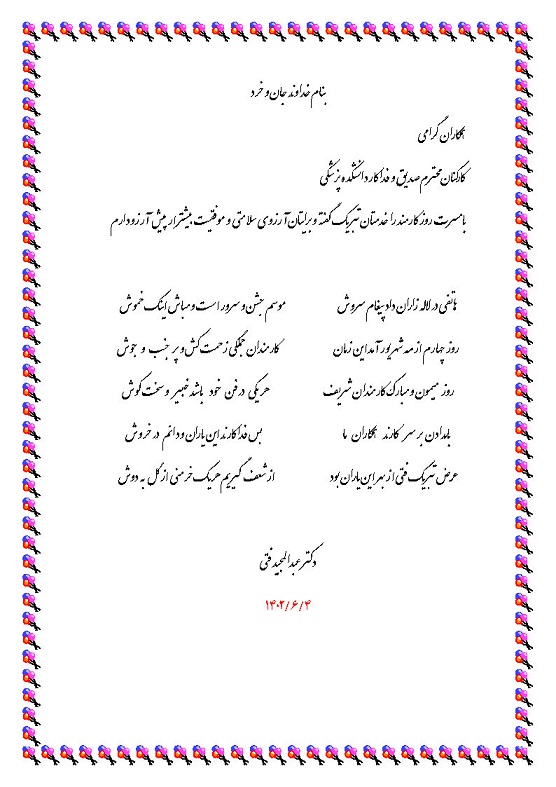 بنام خداوند جان و خرد
همکاران گرامی
کارکنان محترم صدیق و فداکار دانشکده پزشکی
با مسرت روز کارمند را خدمتتان تبریک گفته و برایتان آرزوی سلامتی و موفقیت بیشتر از پیش آرزو دارم
هاتفی در لاله زاران داد پیغام سروش موسم جشن و سرور است و مباش اینک خموش
روز چهارم از مه شهریور آمد این زمان کارمندان جملگی زحمت کش و پر جنب و جوش
روز میمون و مبارک کارمندان شریف هر یکی در فن خود باشد خبیر و سخت کوش
بامدادن بر سر کارند همکاران ما بس فداکارند این یاران و دائم در خروش
عرض تبریک فتی از بهر این یاران بود از شعف گیریم هر یک خرمنی از گل به دوش
دکتر عبدالمجید فتی
۱۴۰۲/۶/۴